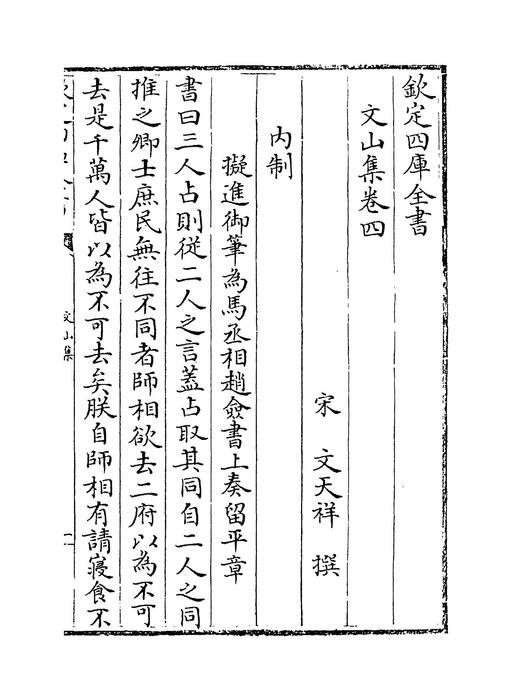 欽定四庫全書
文山集卷四
宋 文天祥 撰
内制
擬進御筆為馬丞相趙僉書上奏留平章
書曰三人占則從二人之言蓋占取其同自二人之同
推之卿士庶民無往不同者師相欲去二府以為不可
去是千萬人皆以為不可去矣朕自師相有請寢食不
文山集